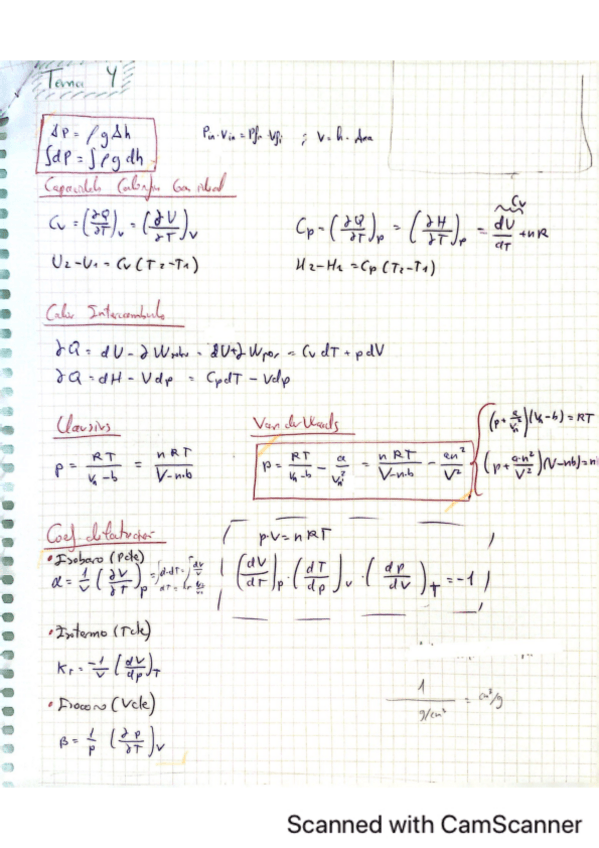 Tema 4
dP = ρ g Δh
∫dP = ∫ρ g dh
Pin · Vin = Pfi · Vfi ; V = h · Area
Capacidades Calorífica Gas ideal
Cv = (∂Q/∂T)v = (∂U/∂T)v
Cp = (∂Q/∂T)p = (∂H/∂T)p = dU/dT + nR
Cv
U2 - U1 = Cv (T2 - T1)
H2 - H1 = Cp (T2 - T1)
Calor Intercambiado
∂Q = dU - ∂W = dU + ∂W = Cv dT + p dV
∂Q = dH - Vdp = Cp dT - Vdp
Clausius
p = RT/(Vn - b) = nRT/(V - n·b)
Van der Waals
p = RT/(Vn - b) - a/Vn² = nRT/(V - n·b) - an²/V²
(p + a/Vn²)(Vn - b) = RT
(p + a·n²/V²)(V - nb) = n
Coef dilatación
• Isobaro (Pcte)
α = 1/V (∂V/∂T)p
p·V = n RT
(dV/dT)p · (dT/dp)v · (dp/dV)T = -1
• Isotermo (Tcte)
KT = -1/V (dV/dp)T
• Isocoro (Vcte)
β = 1/p (∂P/∂T)v
1/(g/cm³) = cm³/g
Scanned with CamScanner